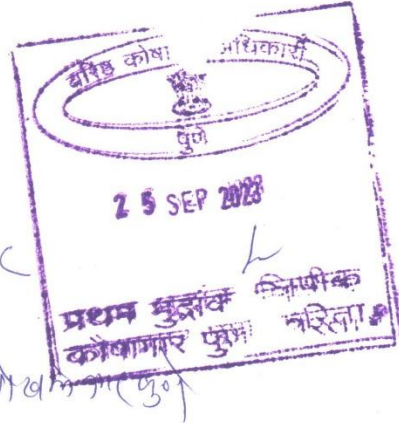 वरिष्ठ कोषा अधिकारी
पुणे
25 SEP 2023
प्रथम मुद्रांक लिपीक
कोषागार पुणे करिता